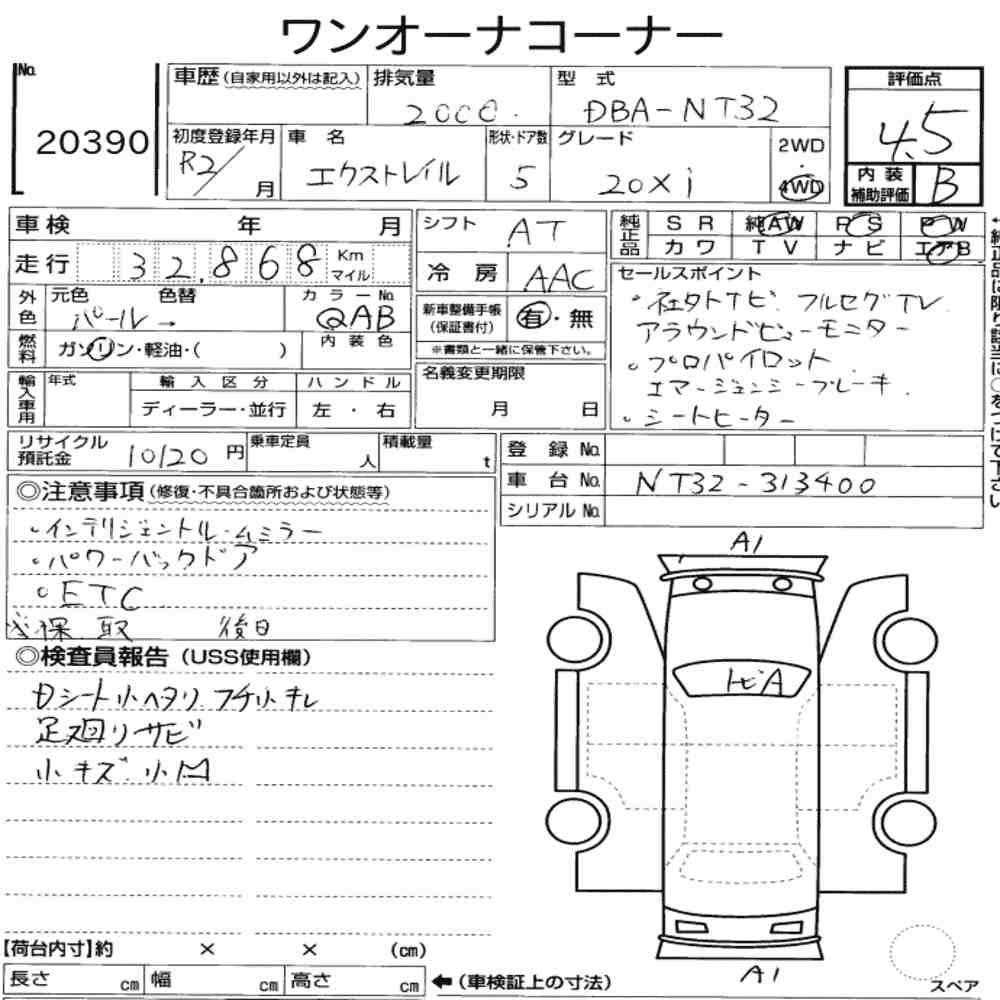 ワンオーナコーナー
No. 20390
車歴(自家用以外は記入) 排気量 2000. 型式 DBA-NT32
初度登録年月 R2/ 月 車名 エクストレイル 形状・ドア数 5 グレード 20Xi 2WD・4WD
評価点 4.5
内装補助評価 B
車検 年 月
走行 32,868 Km マイル
外色 元色 パール→ 色替 カラーNo. QAB
燃料 ガソリン・軽油・( ) 内装色
輸入車用 年式 輸入区分 ディーラー・並行 ハンドル 左・右
シフト AT
冷房 AAC
新車整備手帳(保証書付) 有・無
※書類と一緒に保管下さい。
名義変更期限 月 日
純正品 SR 純AW PS PW
カワ TV ナビ エアB
セールスポイント
・社外ナビ. フルセグTV
アラウンドビューモニター
・プロパイロット
エマージェンシーブレーキ.
・シートヒーター
←純正品に限り該当に○をつけて下さい
リサイクル預託金 10120円 乗車定員 人 積載量 t
登録No.
車台No. NT32-313400
シリアルNo.
◎注意事項(修復・不具合箇所および状態等)
・インテリジェントルームミラー
・パワーバックドア
・ETC
※保.取 後日
◎検査員報告(USS使用欄)
Dシート小ヘタリ.フチ小キレ
足廻りサビ
小キズ.小凹
A1
トビA
A1
【荷台内寸】約 × × (cm)
長さ cm 幅 cm 高さ cm ←(車検証上の寸法)
スペア